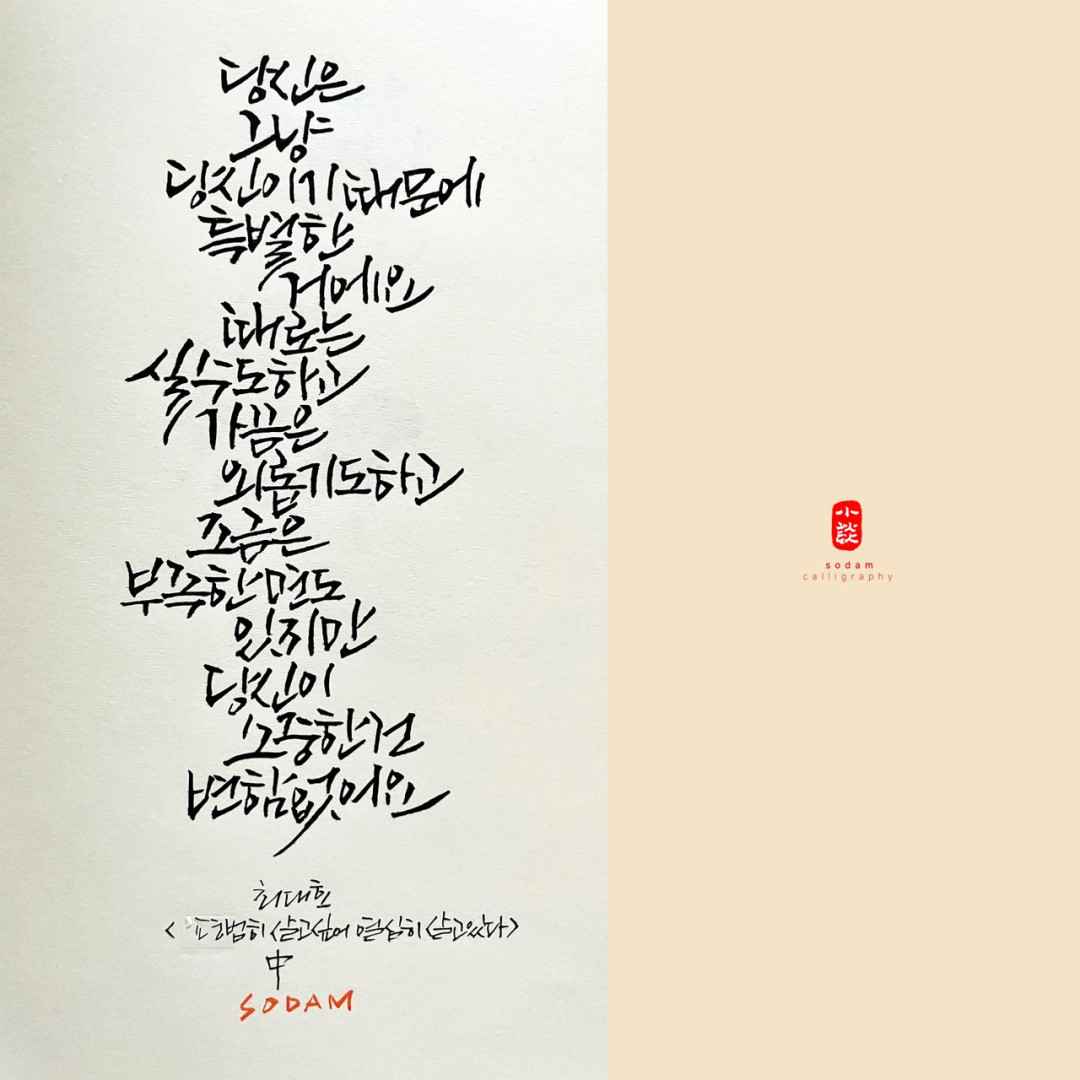 당신은
그냥
당신이기 때문에
특별한
거에요
때로는
실수도하고
가끔은
외롭기도하고
조금은
부족한 면도
있지만
당신이
소중한건
변함없어요
최대호
<평범히 살고싶어 열심히 살고있다>
中
SODAM
小談
sodam
calligraphy